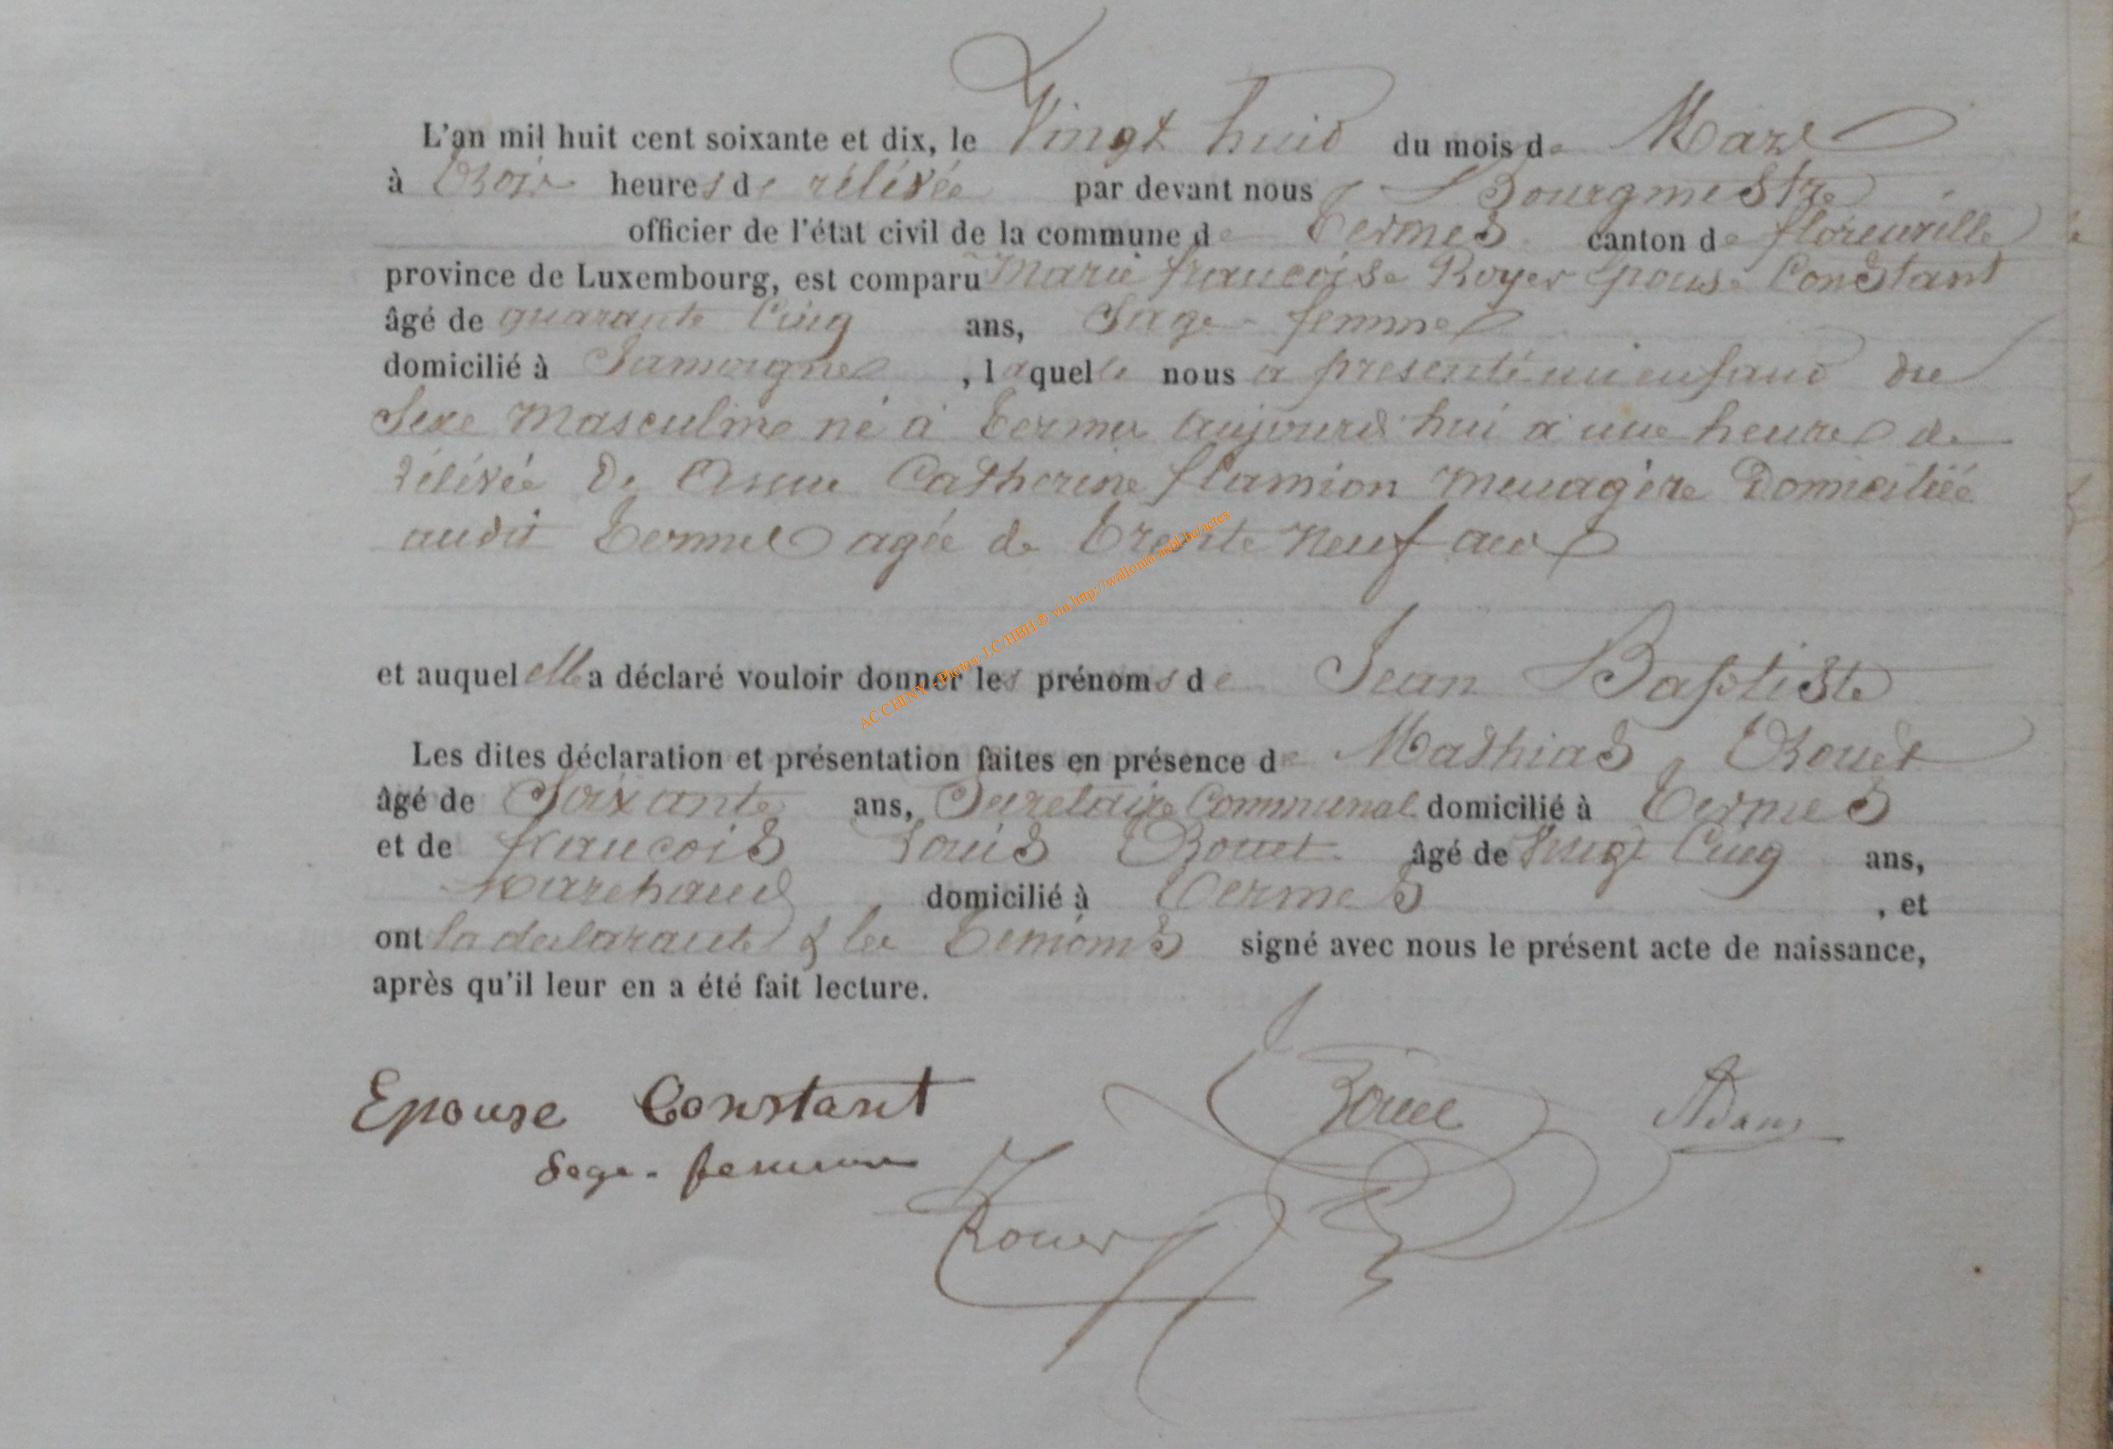 L'an mil huit cent soixante et dix, le Vingt huit du mois de Mars
à trois heures de rélévée par devant nous Bourgmestre
officier de l'état civil de la commune de termes canton de florenville
province de Luxembourg, est comparu Marie francoise Royer Epouse Constant
âgé de quarante Cinq ans, Sage-femme
domicilié à Jamoigne, laquelle nous a presenté un enfant du
Sexe Masculine né à termes aujourd'hui à une heure de
rélévée de Anne Catherine flamion Menagère Domiciliée
audit termes agée de trente Neuf ans
et auquel elle a déclaré vouloir donner les prénoms de Jean Baptiste
Les dites déclaration et présentation faites en présence de Mathias
âgé de Soixante ans, Secretaire Communal domicilié à termes
et de francois Louis âgé de vingt Cinq ans,
Marchand domicilié à termes, et
ont la declarante & les temoins signé avec nous le présent acte de naissance,
après qu'il leur en a été fait lecture.
Epouse Constant
Sage-femme
Adam
AC CHINY - Photos J.C.HBH ® via http://wallonia-asbl.be/actes